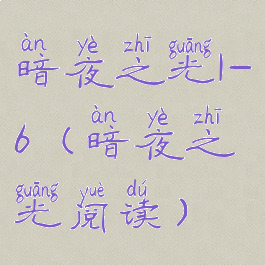 àn yè zhī guāng
暗夜之光1-
àn yè zhī
6(暗夜之
guāng yuè dú
光阅读)